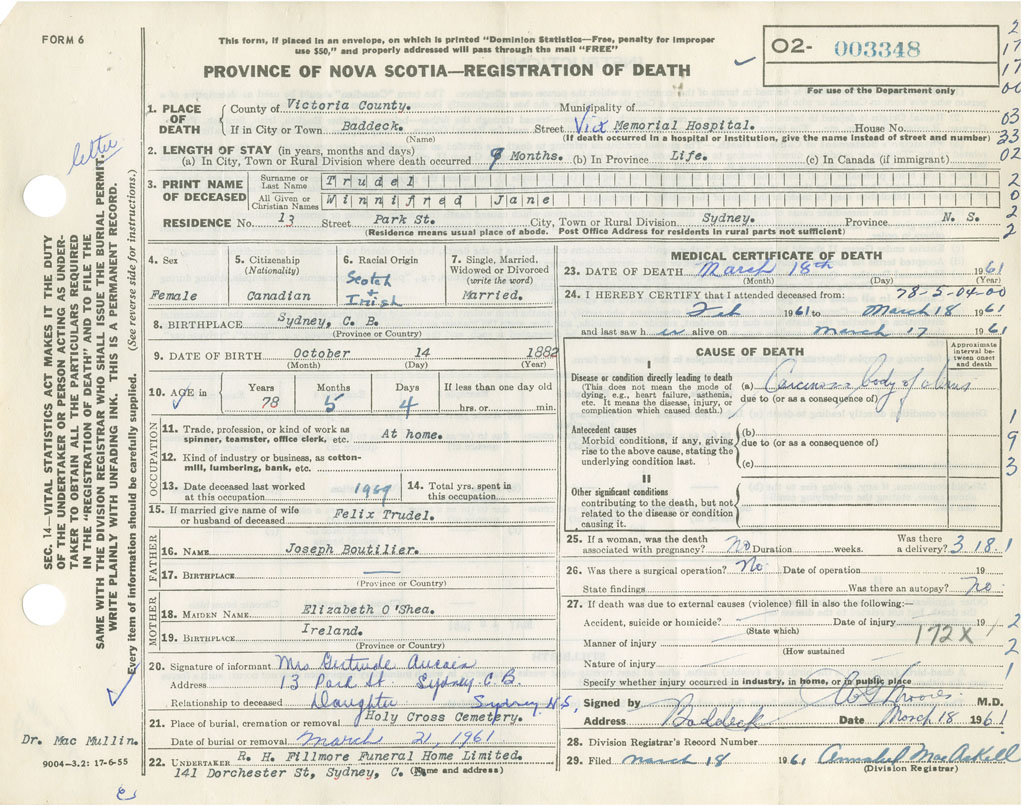 FORM 6
This form, if placed in an envelope, on which is printed "Dominion Statistics—Free, penalty for improper
use $50," and properly addressed will pass through the mail "FREE"
PROVINCE OF NOVA SCOTIA—REGISTRATION OF DEATH
02- 003348
For use of the Department only
1. PLACE OF DEATH
County of Victoria County. Municipality of
If in City or Town Baddeck. Street Vict Memorial Hospital. House No.
(Name) (If death occurred in a hospital or institution, give the name instead of street and number)
2. LENGTH OF STAY (in years, months and days)
(a) In City, Town or Rural Division where death occurred 9 Months. (b) In Province Life. (c) In Canada (if immigrant)
3. PRINT NAME OF DECEASED
Surname or Last Name Trudel
All Given or Christian Names Winnifred Jane
RESIDENCE No. 13 Street Park St. City, Town or Rural Division Sydney. Province N. S.
(Residence means usual place of abode. Post Office Address for residents in rural parts not sufficient)
4. Sex
Female
5. Citizenship
(Nationality)
Canadian
6. Racial Origin
Scotch
+
Irish
7. Single, Married,
Widowed or Divorced
(write the word)
Married.
8. BIRTHPLACE Sydney, C. B.
(Province or Country)
9. DATE OF BIRTH October 14 1882
(Month) (Day) (Year)
10. AGE in Years Months Days If less than one day old
78 5 4 hrs. or min.
OCCUPATION
11. Trade, profession, or kind of work as
spinner, teamster, office clerk, etc. At home.
12. Kind of industry or business, as cotton-
mill, lumbering, bank, etc.
13. Date deceased last worked
at this occupation
14. Total yrs. spent in
this occupation
15. If married give name of wife
or husband of deceased Felix Trudel.
FATHER
16. NAME Joseph Boutilier.
17. BIRTHPLACE —
(Province or Country)
MOTHER
18. MAIDEN NAME Elizabeth O'Shea.
19. BIRTHPLACE Ireland.
(Province or Country)
20. Signature of informant Mrs Gertrude Aucoin
Address 13 Park St Sydney C.B.
Relationship to deceased Daughter Sydney N.S,
21. Place of burial, cremation or removal Holy Cross Cemetery.
Date of burial or removal March 21, 1961
22. UNDERTAKER R. H. Fillmore Funeral Home Limited.
141 Dorchester St, Sydney, C. (Name and address)
MEDICAL CERTIFICATE OF DEATH
23. DATE OF DEATH March 18th 1961
(Month) (Day) (Year)
78-5-04-00
24. I HEREBY CERTIFY that I attended deceased from:
Feb 1961 to March 18 1961
and last saw h er alive on March 17 1961
CAUSE OF DEATH
Approximate
interval be-
tween onset
and death
I
Disease or condition directly leading to death
(This does not mean the mode of
dying, e.g., heart failure, asthenia,
etc. It means the disease, injury, or
complication which caused death.)
(a) Carcinoma body of uterus
due to (or as a consequence of)
Antecedent causes
Morbid conditions, if any, giving
rise to the above cause, stating the
underlying condition last.
(b)
due to (or as a consequence of)
(c)
II
Other significant conditions
contributing to the death, but not
related to the disease or condition
causing it.
25. If a woman, was the death
associated with pregnancy? No Duration weeks. Was there
a delivery? 3.18.1
26. Was there a surgical operation? No. Date of operation 19
State findings Was there an autopsy? No.
27. If death was due to external causes (violence) fill in also the following:—
Accident, suicide or homicide? Date of injury 19
(State which) 172X
Manner of injury
(How sustained
Nature of injury
Specify whether injury occurred in industry, in home, or in public place
Signed by M.D.
Address Baddeck Date March 18 1961
28. Division Registrar's Record Number
29. Filed march 18 1961 Annabel MacAskill
(Division Registrar)
letter
SEC. 14—VITAL STATISTICS ACT MAKES IT THE DUTY
OF THE UNDERTAKER OR PERSON ACTING AS UNDER-
TAKER TO OBTAIN ALL THE PARTICULARS REQUIRED
IN THE "REGISTRATION OF DEATH" AND TO FILE THE
SAME WITH THE DIVISION REGISTRAR WHO SHALL ISSUE THE BURIAL PERMIT.
WRITE PLAINLY WITH UNFADING INK. THIS IS A PERMANENT RECORD.
Every item of information should be carefully supplied. (See reverse side for instructions.)
Dr. Mac Mullin.
9004-3.2: 17-6-55
2
17
17
00
03
33
02
2
0
2
2
1
9
3
1
2
2
1